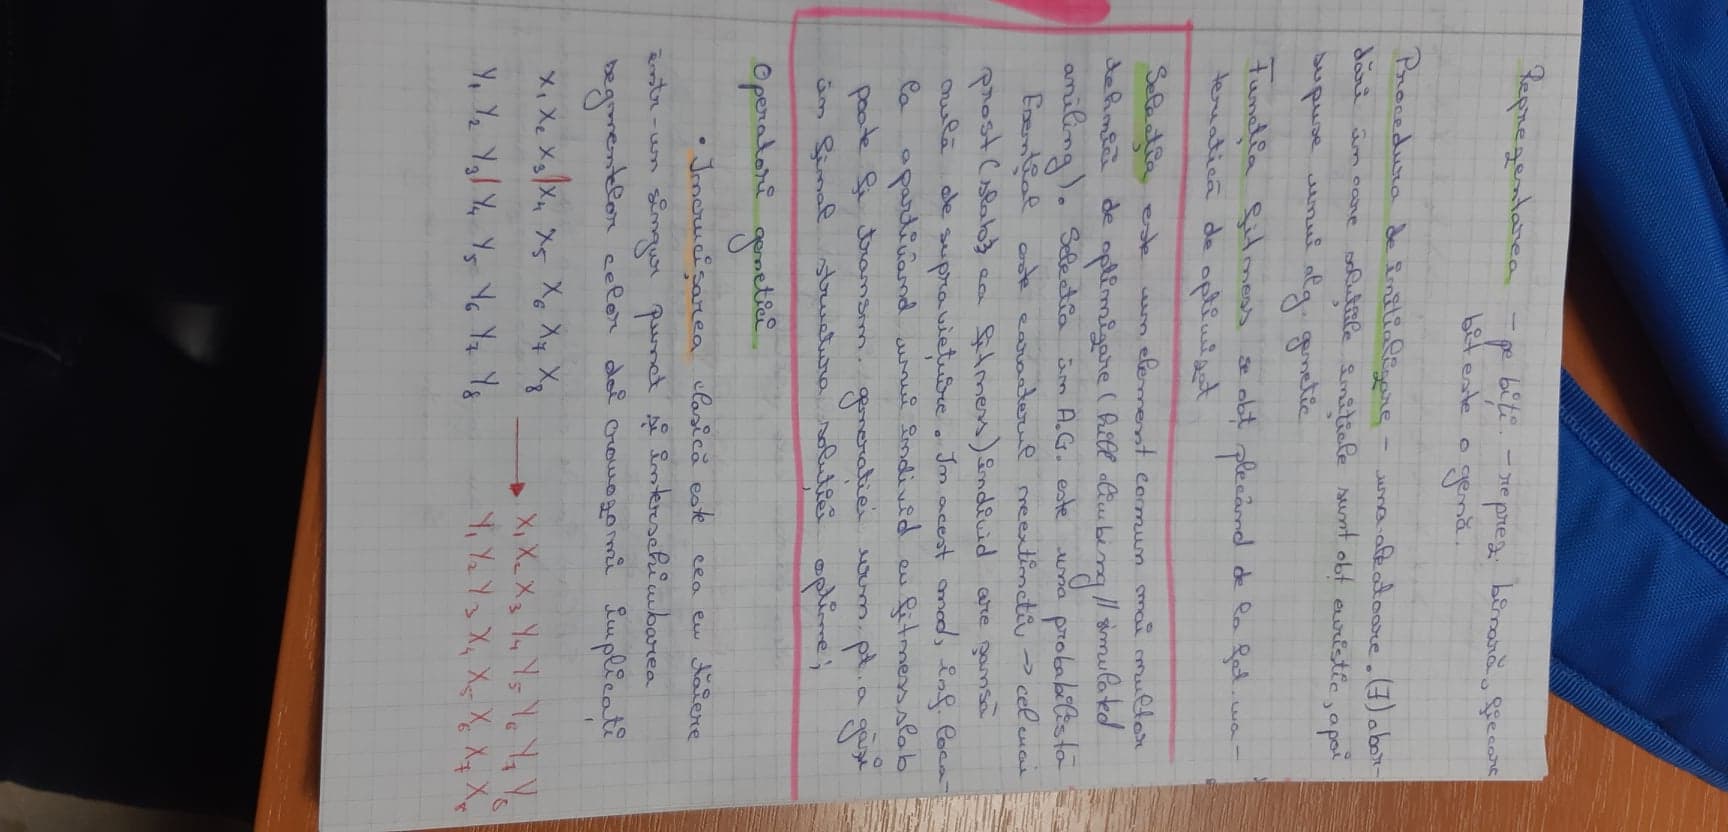 Reprezentarea - pe biți. - reprez. binară, fiecare
bit este o genă.
Procedura de inițializare - una aleatoare. (∃) abor-
dări în care soluțiile inițiale sunt obț euristic, apoi
supuse unui alg. genetic
Funcția fitness se obț plecând de la fct. ma-
tematică de optimizat
Selecția este un element comun mai multor
tehnici de optimizare (hill climbing // simulated
aniling). Selectia în A.G. este una probabilistă
Esențial este caracterul neextinctiv → cel mai
prost (slab ca fitness) individ are șansă
nulă de supraviețuire. In acest mod, inf. loca-
la aparținând unui individ cu fitness slab
poate fi transm. generației urm. pt. a găsi
în final structura soluției optime;
Operatori genetici
• Incrucișarea clasică este cea cu tăiere
într-un singur punct și interschimbarea
segmentelor celor doi cromozomi implicați
X₁ X₂ X₃ | X₄ X₅ X₆ X₇ X₈ → X₁ X₂ X₃ Y₄ Y₅ Y₆ Y₇ Y₈
Y₁ Y₂ Y₃ | Y₄ Y₅ Y₆ Y₇ Y₈ Y₁ Y₂ Y₃ X₄ X₅ X₆ X₇ X₈